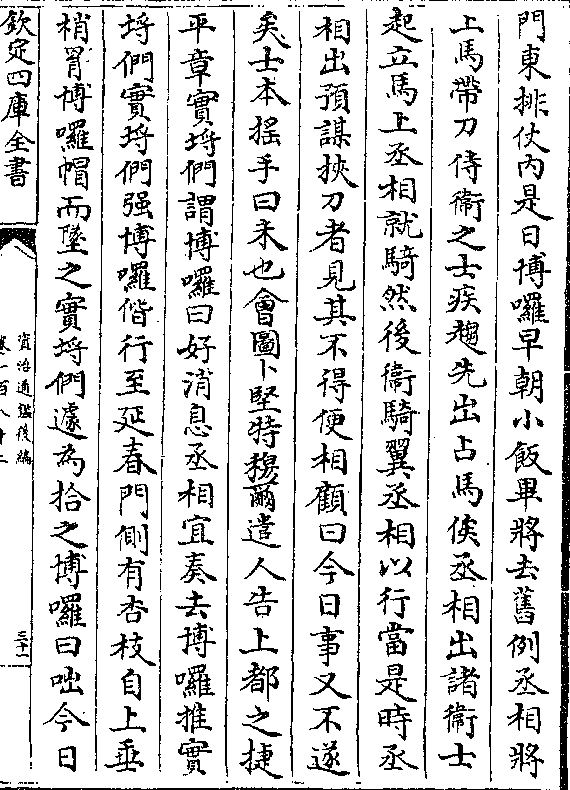 門東排仗内是日博囉早朝小飯畢將去舊例丞相將
上馬帶刀侍衞之士疾趨先出占馬俟丞相出諸衞士
起立馬上丞相就騎然後衞騎翼丞相以行當是時丞
相出預謀挾刀者見其不得便相顧曰今日事又不遂
矣士本搖手曰未也會圖卜堅特穆爾遣人告上都之捷
平章實埓們謂博囉曰好消息丞相宜奏去博囉推實
埓們實埓們强博囉偕行至延春門側有杏枝自上垂
梢罥博囉帽而墜之實埓們遽為拾之博囉曰咄今日
欽定四庫全書
資治通鑑後編
卷一百八十二
三十一